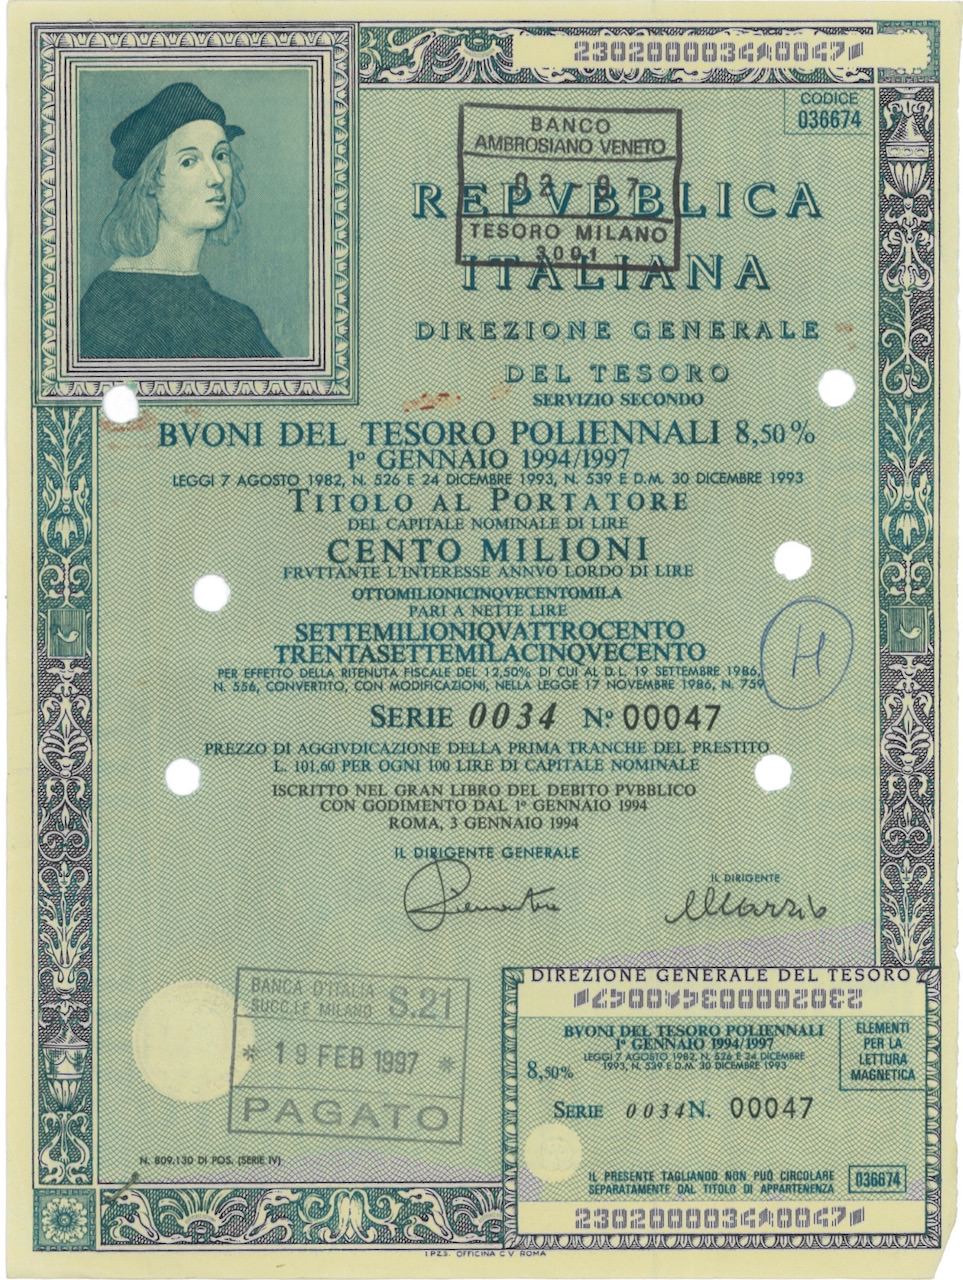 230200003400047
CODICE
036674
BANCO
AMBROSIANO VENETO
02-97
TESORO MILANO
3001
REPVBBLICA
ITALIANA
DIREZIONE GENERALE
DEL TESORO
SERVIZIO SECONDO
BVONI DEL TESORO POLIENNALI 8,50%
1º GENNAIO 1994/1997
LEGGI 7 AGOSTO 1982, N. 526 E 24 DICEMBRE 1993, N. 539 E D.M. 30 DICEMBRE 1993
TITOLO AL PORTATORE
DEL CAPITALE NOMINALE DI LIRE
CENTO MILIONI
FRVTTANTE L'INTERESSE ANNVO LORDO DI LIRE
OTTOMILIONICINQVECENTOMILA
PARI A NETTE LIRE
SETTEMILIONIQVATTROCENTO
TRENTASETTEMILACINQVECENTO
PER EFFETTO DELLA RITENUTA FISCALE DEL 12,50% DI CUI AL D.L. 19 SETTEMBRE 1986,
N. 556, CONVERTITO, CON MODIFICAZIONI, NELLA LEGGE 17 NOVEMBRE 1986, N. 759
H
SERIE 0034 Nº 00047
PREZZO DI AGGIVDICAZIONE DELLA PRIMA TRANCHE DEL PRESTITO
L. 101,60 PER OGNI 100 LIRE DI CAPITALE NOMINALE
ISCRITTO NEL GRAN LIBRO DEL DEBITO PVBBLICO
CON GODIMENTO DAL 1º GENNAIO 1994
ROMA, 3 GENNAIO 1994
IL DIRIGENTE GENERALE
IL DIRIGENTE
BANCA D'ITALIA
SUCC.LE MILANO S.21
* 19 FEB 1997 *
PAGATO
N. 809.130 DI POS. (SERIE IV)
DIREZIONE GENERALE DEL TESORO
230200003400047
BVONI DEL TESORO POLIENNALI
1º GENNAIO 1994/1997
LEGGI 7 AGOSTO 1982, N. 526 E 24 DICEMBRE
1993, N. 539 E D.M. 30 DICEMBRE 1993
8,50%
ELEMENTI
PER LA
LETTURA
MAGNETICA
SERIE 0034 N. 00047
IL PRESENTE TAGLIANDO NON PUÒ CIRCOLARE
SEPARATAMENTE DAL TITOLO DI APPARTENENZA
036674
230200003400047
I.P.Z.S. OFFICINA C.V. ROMA